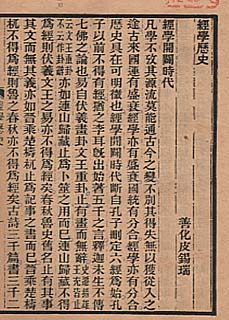 經學歷史
善化皮錫瑞
經學開闢時代
凡學不攷其源流莫能通古今之變不別其得失無以獲從入之
途古來國運有盛衰經學亦有盛衰國統有分合經學亦有分合
歷史具在可明徵也經學開闢時代斷自孔子刪定六經為始孔
子以前不得有經猶之李耳既出始著五千之言釋迦未生不傳
七佛之論也易自伏羲畫卦文王重卦止有畫而無辭史遷揚雄王充皆止
云文王重卦不云作卦辭亦如連山歸藏止為卜筮之用而已連山歸藏不得
為經則伏羲文王之易亦不得為經矣春秋魯史舊名止有其事
其文而無其義亦如晉乘楚檮杌止為記事之書而已晉乘楚檮
杌不得為經則魯之春秋亦不得為經矣古詩三千篇書三千二